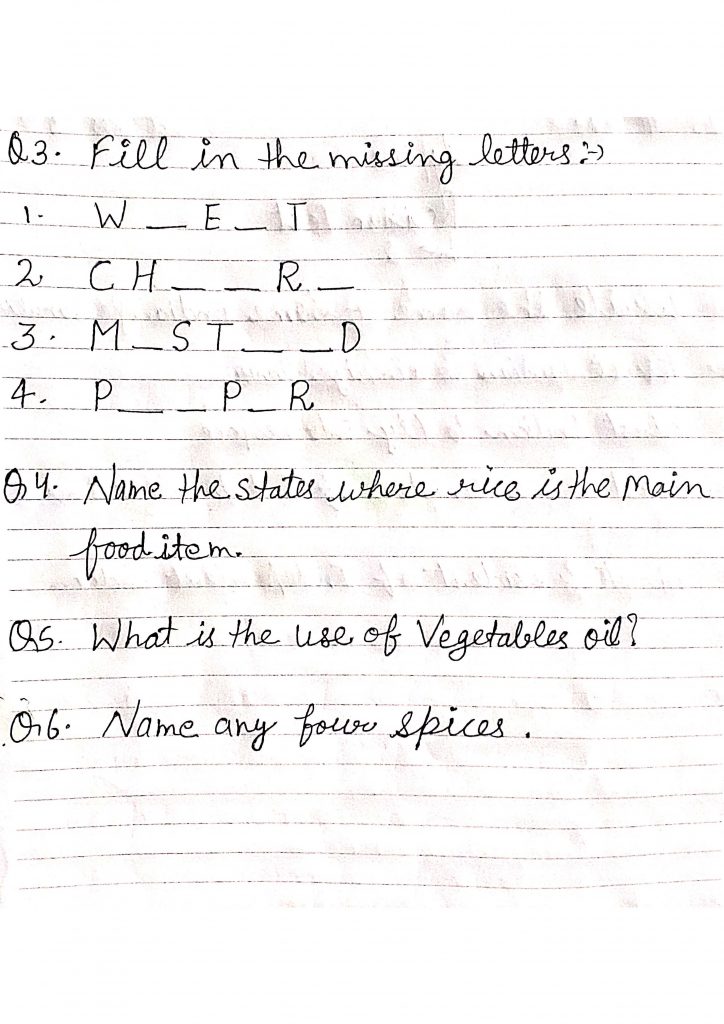 Q3. Fill in the missing letters :-)
1. W _ E _ T
2 C H _ _ R _
3. M _ S T _ _ D
4. P _ _ P _ R
Q4. Name the states where rice is the main
food item.
Q5. What is the use of Vegetables oil?
Q6. Name any four spices.